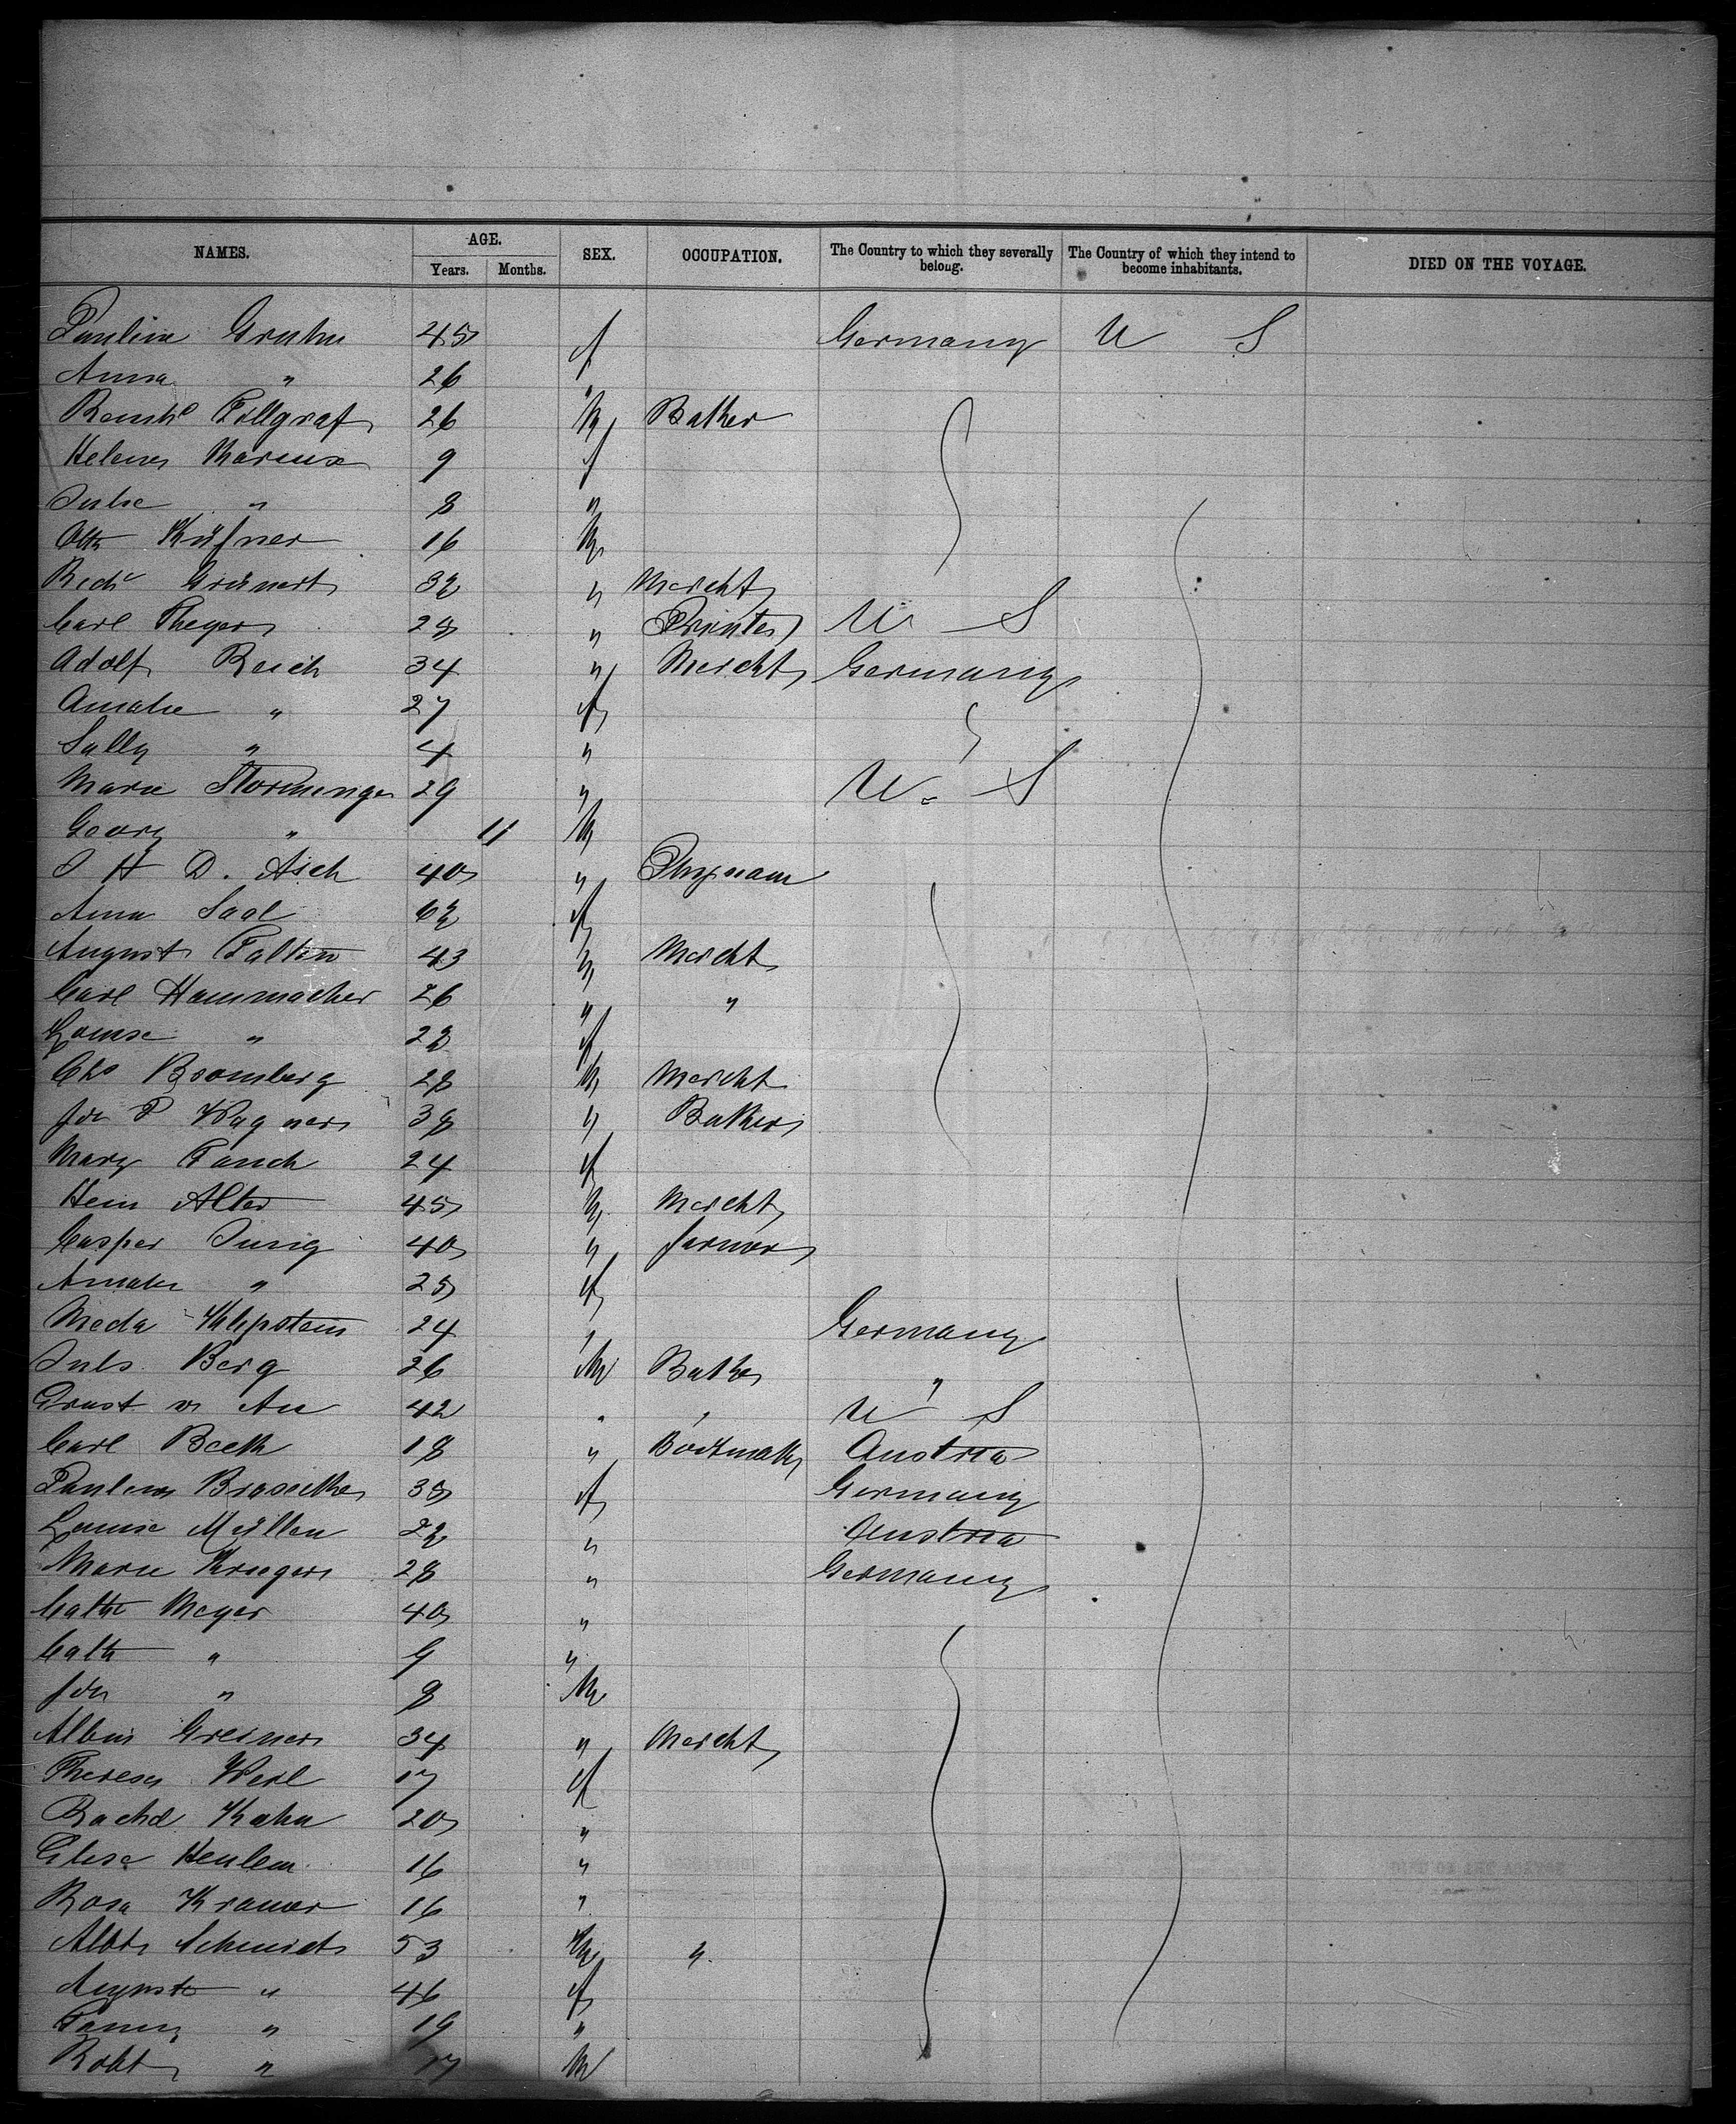 NAMES. AGE. SEX. OCCUPATION. The Country to which they severally belong. The Country of which they intend to become inhabitants. DIED ON THE VOYAGE.
Years. Months.
Pauline Gruhn 45 f Germany U S
Anna " 26 "
Reinhd Fellgraf 26 M Baker
Helene Marcus 9 f
Julie " 8 "
Otto Küfner 16 M
Richd Grünert 32 " Mercht
Carl Theyer 28 " Printer U S
Adolf Reich 34 " Mercht Germany
Amalie " 27 f
Sally " 4 "
Marie Storminger 29 " U. S
Georg " 11 M
J H D. Asch 40 "
Anna Saal 62 f
August Falken 43 M Mercht
Carl Hammacher 26 " "
Louise " 22 f
Chs Bromberg 28 M Mercht
Joh P Wagner 38 " Baker
Mary Fauch 24 f
Hein Alter 45 M Mercht
Casper Jung 40 " farmer
Amalie " 25 f
Meda Klipstein 24 " Germany
Juls Berg 26 M Baker "
Ernst v Au 42 " " U S
Carl Beck 18 " Bootmak Austria
Pauline 35 f Germany
Louise Müller 22 " Austria
Marie Krueger 28 " Germany
Cathe Meyer 40 "
Cath " 9 "
Joh " 8 M
Albin Greiner 34 " Mercht
Theresa Weil 17 f
Rachel Kahn 20 "
Elise Henlein 16 "
Rosa Kramer 16 "
Albt Schmidt 53 M "
Auguste " 46 f
Fanny " 19 "
Robt " 17 M